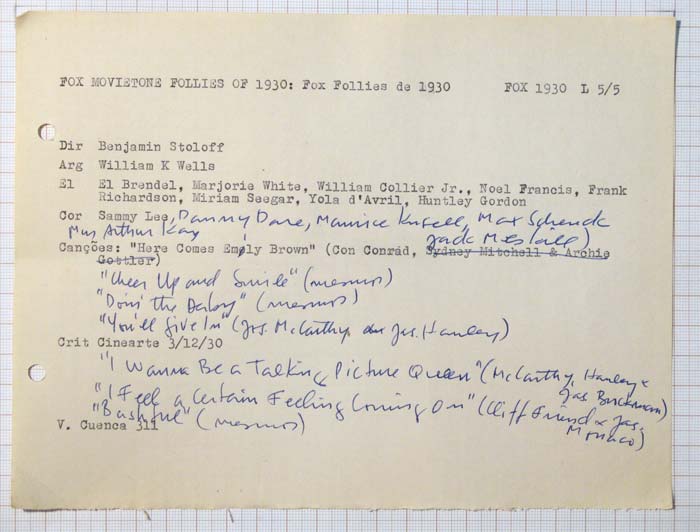 FOX MOVIETONE FOLLIES OF 1930: Fox Follies de 1930 FOX 1930 L 5/5
Dir Benjamin Stoloff
Arg William K Wells
El El Brendel, Marjorie White, William Collier Jr., Noel Francis, Frank
Richardson, Miriam Seegar, Yola d'Avril, Huntley Gordon
Cor Sammy Lee, Danny Dare, Maurice Kusell, Max Scheck
Mus Arthur Kay
Canções: "Here Comes Emily Brown" (Con Conrad, Jack Meskill)
Sydney Mitchell & Archie
Gottler)
"Cheer Up and Smile" (mesmos)
"Doin' the Derby" (mesmos)
"You'll Give In" (Jos. McCarthy Jas. Hanley)
Crit Cinearte 3/12/30
"I Wanna Be a Talking Picture Queen" (McCarthy, Hanley &
Jas Brockman)
"I Feel a Certain Feeling Coming On" (Cliff Friend & Jas.
Monaco)
"Bashful" (mesmos)
V. Cuenca 311